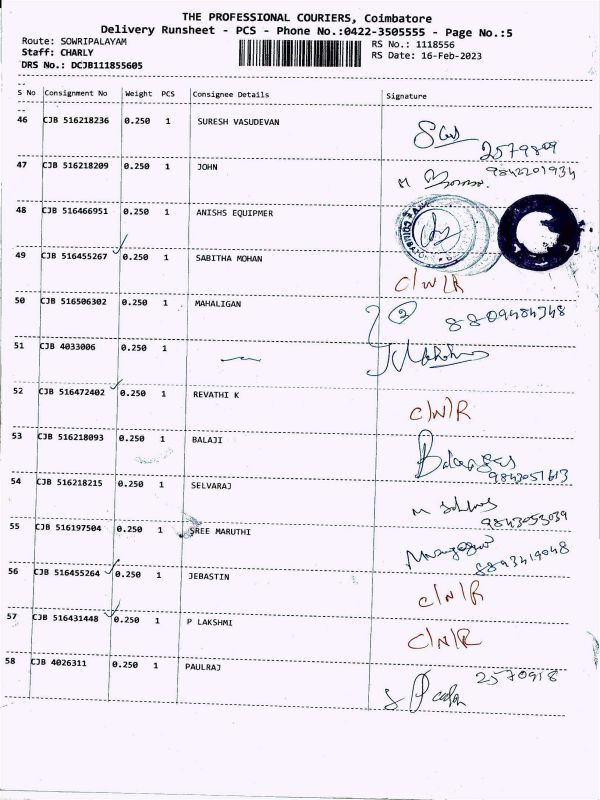 THE PROFESSIONAL COURIERS, Coimbatore
Delivery Runsheet - PCS - Phone No.:0422-3505555 - Page No.:5
Route: SOWRIPALAYAM RS No.: 1118556
Staff: CHARLY RS Date: 16-Feb-2023
DRS No.: DCJB111855605
S No Consignment No Weight PCS Consignee Details Signature
46 CJB 516218236 0.250 1 SURESH VASUDEVAN
47 CJB 516218209 0.250 1 JOHN 9842201934
48 CJB 516466951 0.250 1 ANISHS EQUIPMER
49 CJB 516455267 0.250 1 SABITHA MOHAN C/N/R
50 CJB 516506302 0.250 1 MAHALIGAN 2
51 CJB 4033006 0.250 1
52 CJB 516472402 0.250 1 REVATHI K C/N/R
53 CJB 516218093 0.250 1 BALAJI
9843051613
54 CJB 516218215 0.250 1 SELVARAJ
9843053039
55 CJB 516197504 0.250 1 SREE MARUTHI
8893419048
56 CJB 516455264 0.250 1 JEBASTIN C/N/R
57 CJB 516431448 0.250 1 P LAKSHMI C/N/R
58 CJB 4026311 0.250 1 PAULRAJ 2570918